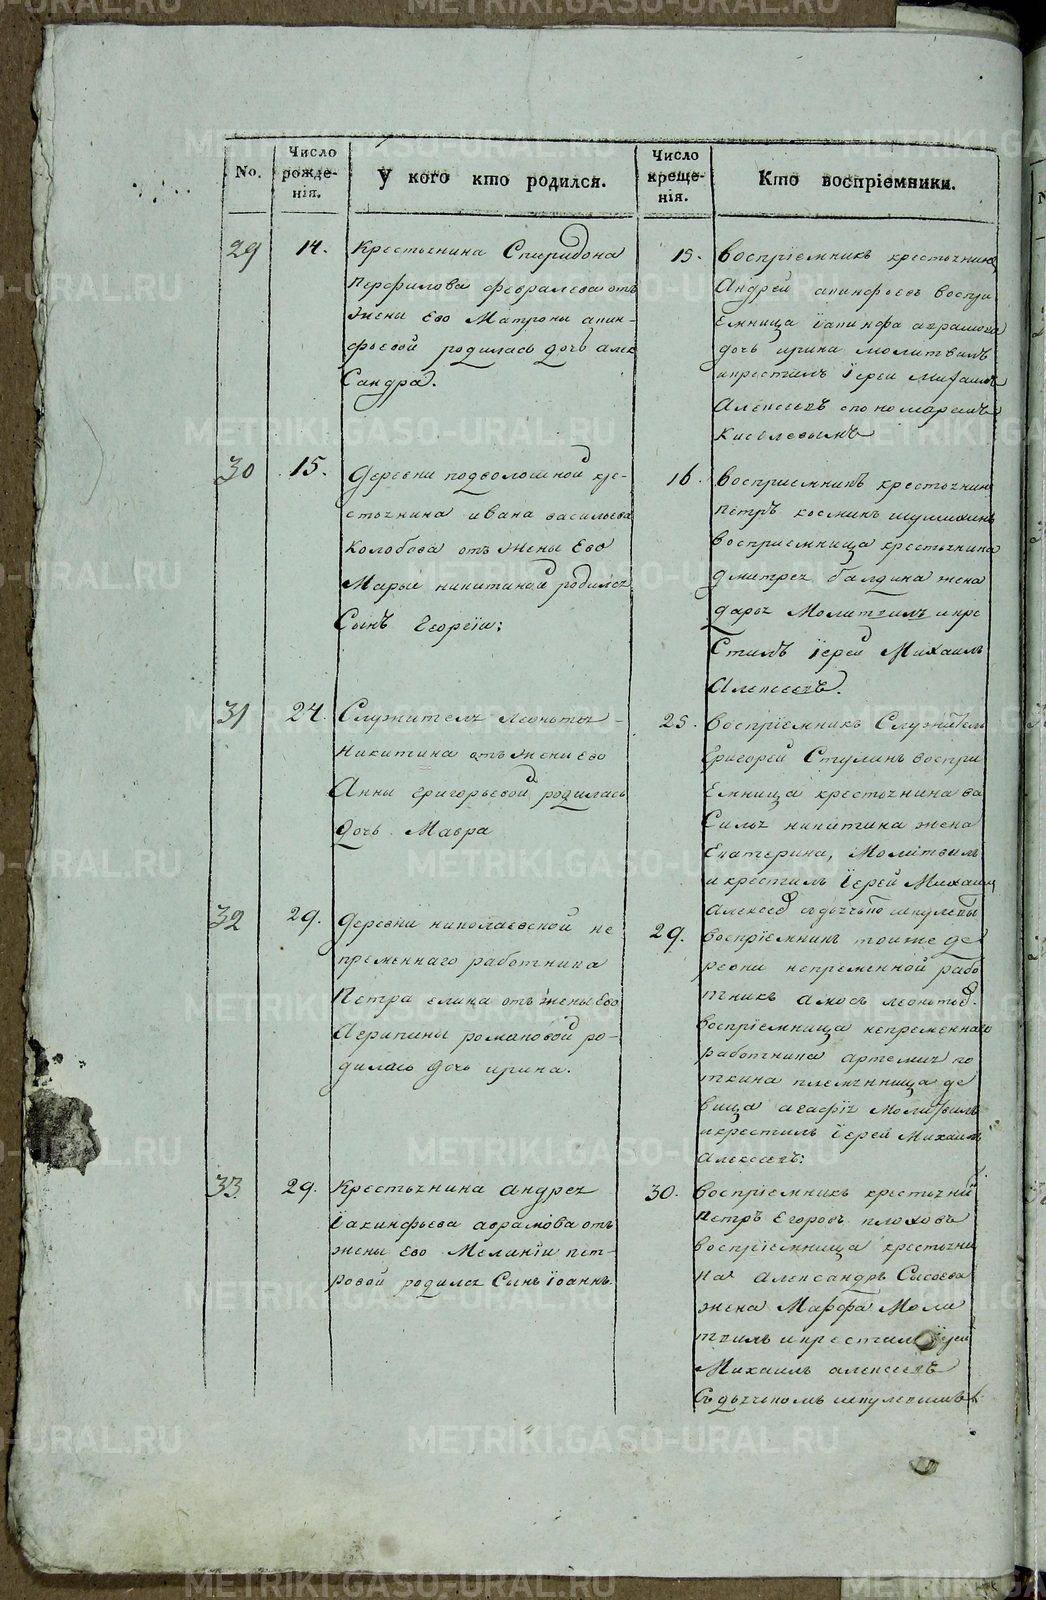 No.
Число рожденія.
У кого кто родился.
Число крещенія.
Кто воспріемники.
29
14.
Крестьянина Спиридона
Перфилова февралева отъ
жены Его Матроны акин-
фьевой родилась дочь алек
Сандра.
15.
Воспріемникъ крестьянинъ
Андрей акинфьевъ воспрі
Емница Іакинфа аврамова
дочь ирина молитвилъ
икрестилъ Іерей Михаилъ
Алексеевъ спономаремъ
Киселевымъ
30
15.
Деревни подволошной кре-
стьянина ивана васильева
Колобова отъ жены Его
Марьи никитиной родился
Сынъ Георгій;
16.
Воспріемникъ крестьянинъ
Петръ космин
воспріемница крестьянина
дмитрея балдина жена
дарья Молитвилъ икре
Стилъ Іерей Михаилъ
Алексеевъ.
31
24.
Служителя Леонтья
Никитина отъ жены Его
Анны григорьевой родилась
дочь Мавра
25.
Воспріемникъ Служитель
Григорей Ступинъ воспри
Емница крестьянина ва
Силья никитина жена
Екатерина, Молитвилъ
и крестилъ Іерей Михаилъ
Алексеев
32
29.
деревни николаевской не
пременнаго работника
Петра елина отъ жены Его
Агрипины романовой ро-
дилась дочь ирина.
29.
воспріемникъ тоиже де
ревни непременной рабо
тникъ амосъ леонтьев.
воспріемница непременнаго
работника артемия по
ткина племянница де
вица агафія молитвилъ
икрестилъ Іерей Михаилъ
алексеевъ:
33
29.
Крестьянина андрея
Іакинфьева аврамова отъ
жены Его Меланіи пет-
ровой родился Сынъ Іоаннъ.
30.
воспріемникъ крестьянин
Петръ Егоровъ плоховъ
воспріемница крестьяни
на Александръ Сысоева
жена Марфа Моли
твилъ икрестилъ Іерей
Михаилъ алексеевъ
Съдьячкомъ
METRIKI.GASO-URAL.RU